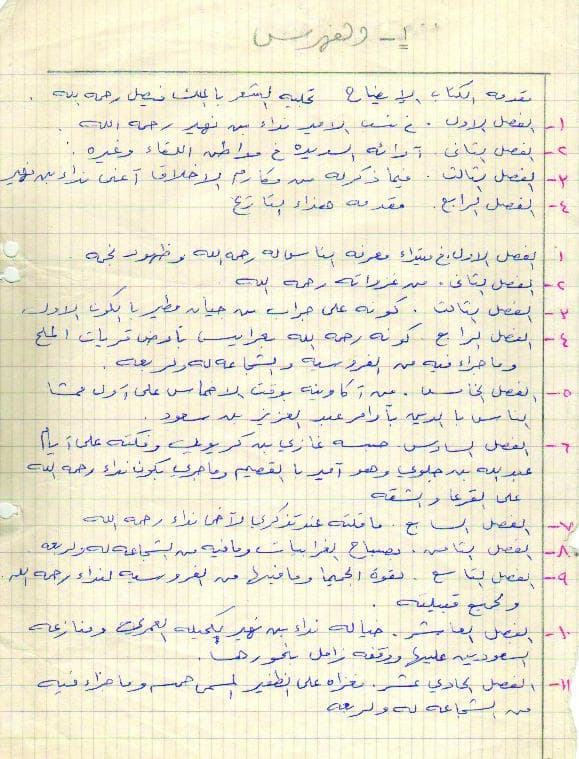 ١- الفهرس
تقدمه الكتاب الإيضاح تحليه الشعر بالملك فيصل رحمه الله .
١- الفصل الاول . في نسب الامير نداء بن نهير رحمه الله .
٢- الفصل الثاني . آرائه السديده في مواطن اللقاء وغيره .
٣- الفصل الثالث . فيما ذكر له من مكارم الاخلاق أعنى نداء بن نهير
٤- الفصل الرابع . مقدمه هذاء التاريخ
١ الفصل الاول . في مبتداء معرفه الناس له رحمه الله وظهور نجمه
٢- الفصل الثاني . من غزواته رحمه الله
٣- الفصل الثالث . كونه على حراب من حيان مطير بالكون الاول
٤- الفصل الرابع . كونه رحمه الله بأرض قريات الملح
وماجراء فيه من الفروسيه والشجاعه له ولربعه .
٥- الفصل الخامس . من آكاوينه بوقت الاخماس على أول
الناس بالدين بأوامر عبد العزيز بن سعود .
٦- الفصل السادس . حبسه غازي بن كريويل وفكته على آيام
عبدالله بن جلوي وهو أمير بالقصيم وماجرى بكون نداء رحمه الله
على القرعا والشقه
٧- الفصل السابع . ماقلته عند تذكري لآخى نداء رحمه الله
٨- الفصل الثامن . مصباح الغرابيات ومافيه من الشجاعه له ولربعه
٩- الفصل التاسع . لقوة الجميما ومافيها من الفروسيه لنداء رحمه الله
ولجميع قبيلته .
١٠- الفصل العاشر . حياله نداء بن نهير العمرى ومنازعه
السعوديين عليها ووقفه زامل بنحورها .
١١- الفصل الحادي عشر . مغزاه على الظفير المسمى وماجراء فيه
من الشجاعه له ولربعه